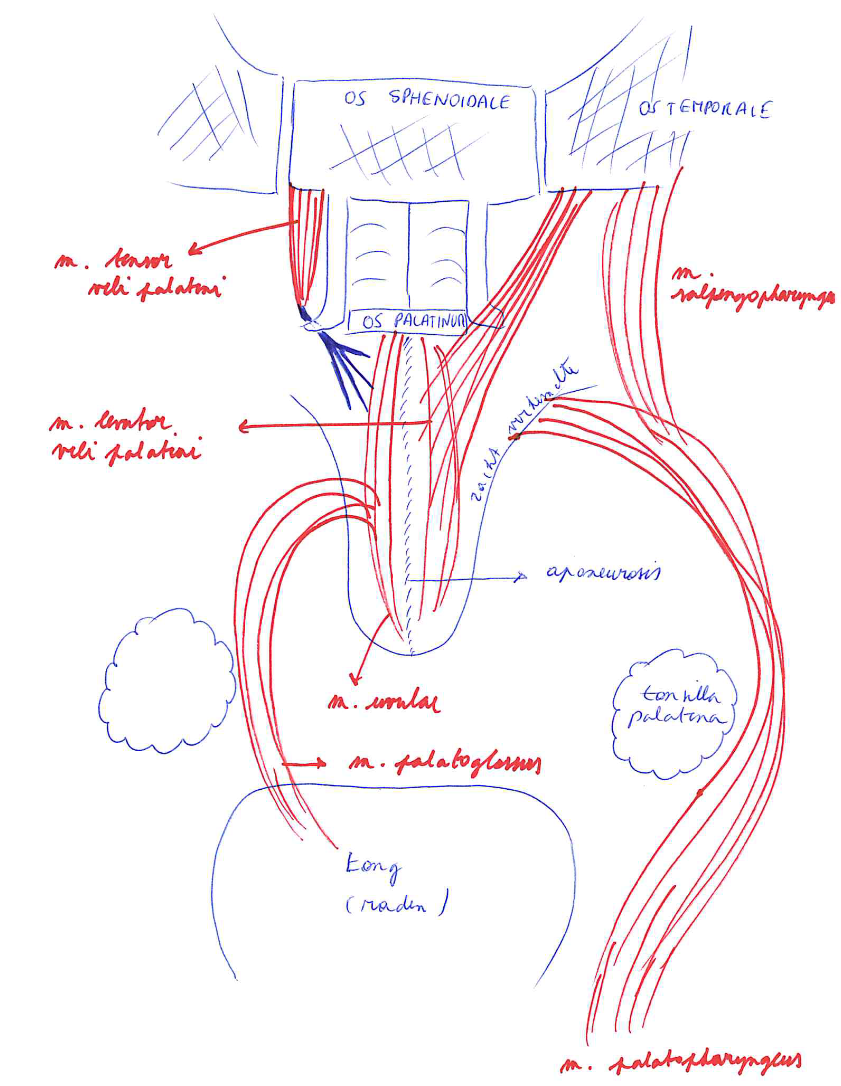 OS SPHENOIDALE
OS TEMPORALE
m. tensor
veli palatini
m.
salpingopharynge
OS PALATINUM
zacht verhemelte
m. levator
veli palatini
aponeurosis
m. uvular
tonsilla
palatina
m. palatoglossus
tong
(raden)
m. palatopharyngeus